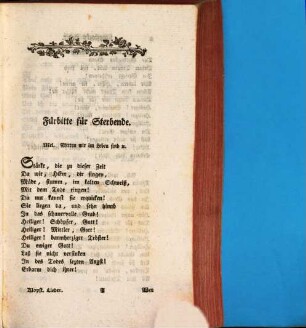 Fürbitte für Sterbende.
Mel. Mitten wir im Leben sind ꝛc.
Stärke, die zu dieser Zeit
Du wir, Herr, dir singen,
Müde, stumm, im kalten Schweiß,
Mit dem Tode ringen!
Du nur kannst sie erquicken!
Sie liegen da, und sehn hinab
In das schauervolle Grab!
Heiliger! Schöpfer, Gott!
Heiliger! Mittler, Gott!
Heiliger! barmherziger Tröster!
Du ewiger Gott!
Laß sie nicht versinken
In des Todes letzten Angst!
Erbarm dich ihrer!
Klopst. Lieder. A Wen